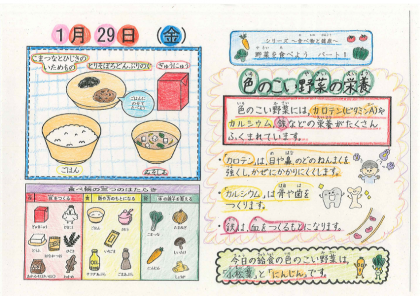 1月29日(金)
こまつなとひじきの
いためもの
とりそぼろどんぶりのぐ
ぎゅうにゅう
ごはんにかけてね
ごはん
みそしる
食べ物の三つのはたらき
シリーズ〜食べ物と健康〜
野菜を食べよう パート1
色のこい野菜の栄養
色のこい野菜には、カロテン(ビタミンA)や
カルシウム、鉄などの栄養がたくさん
ふくまれています。
・カロテンは、目や鼻、のどのねんまくを
強くし、かぜにかかりにくくします。
・カルシウムは、骨や歯を
つくります。
・鉄は、血をつくるもとになります。
今日の給食の色のこい野菜は、
「小松菜」と「にんじん」です。